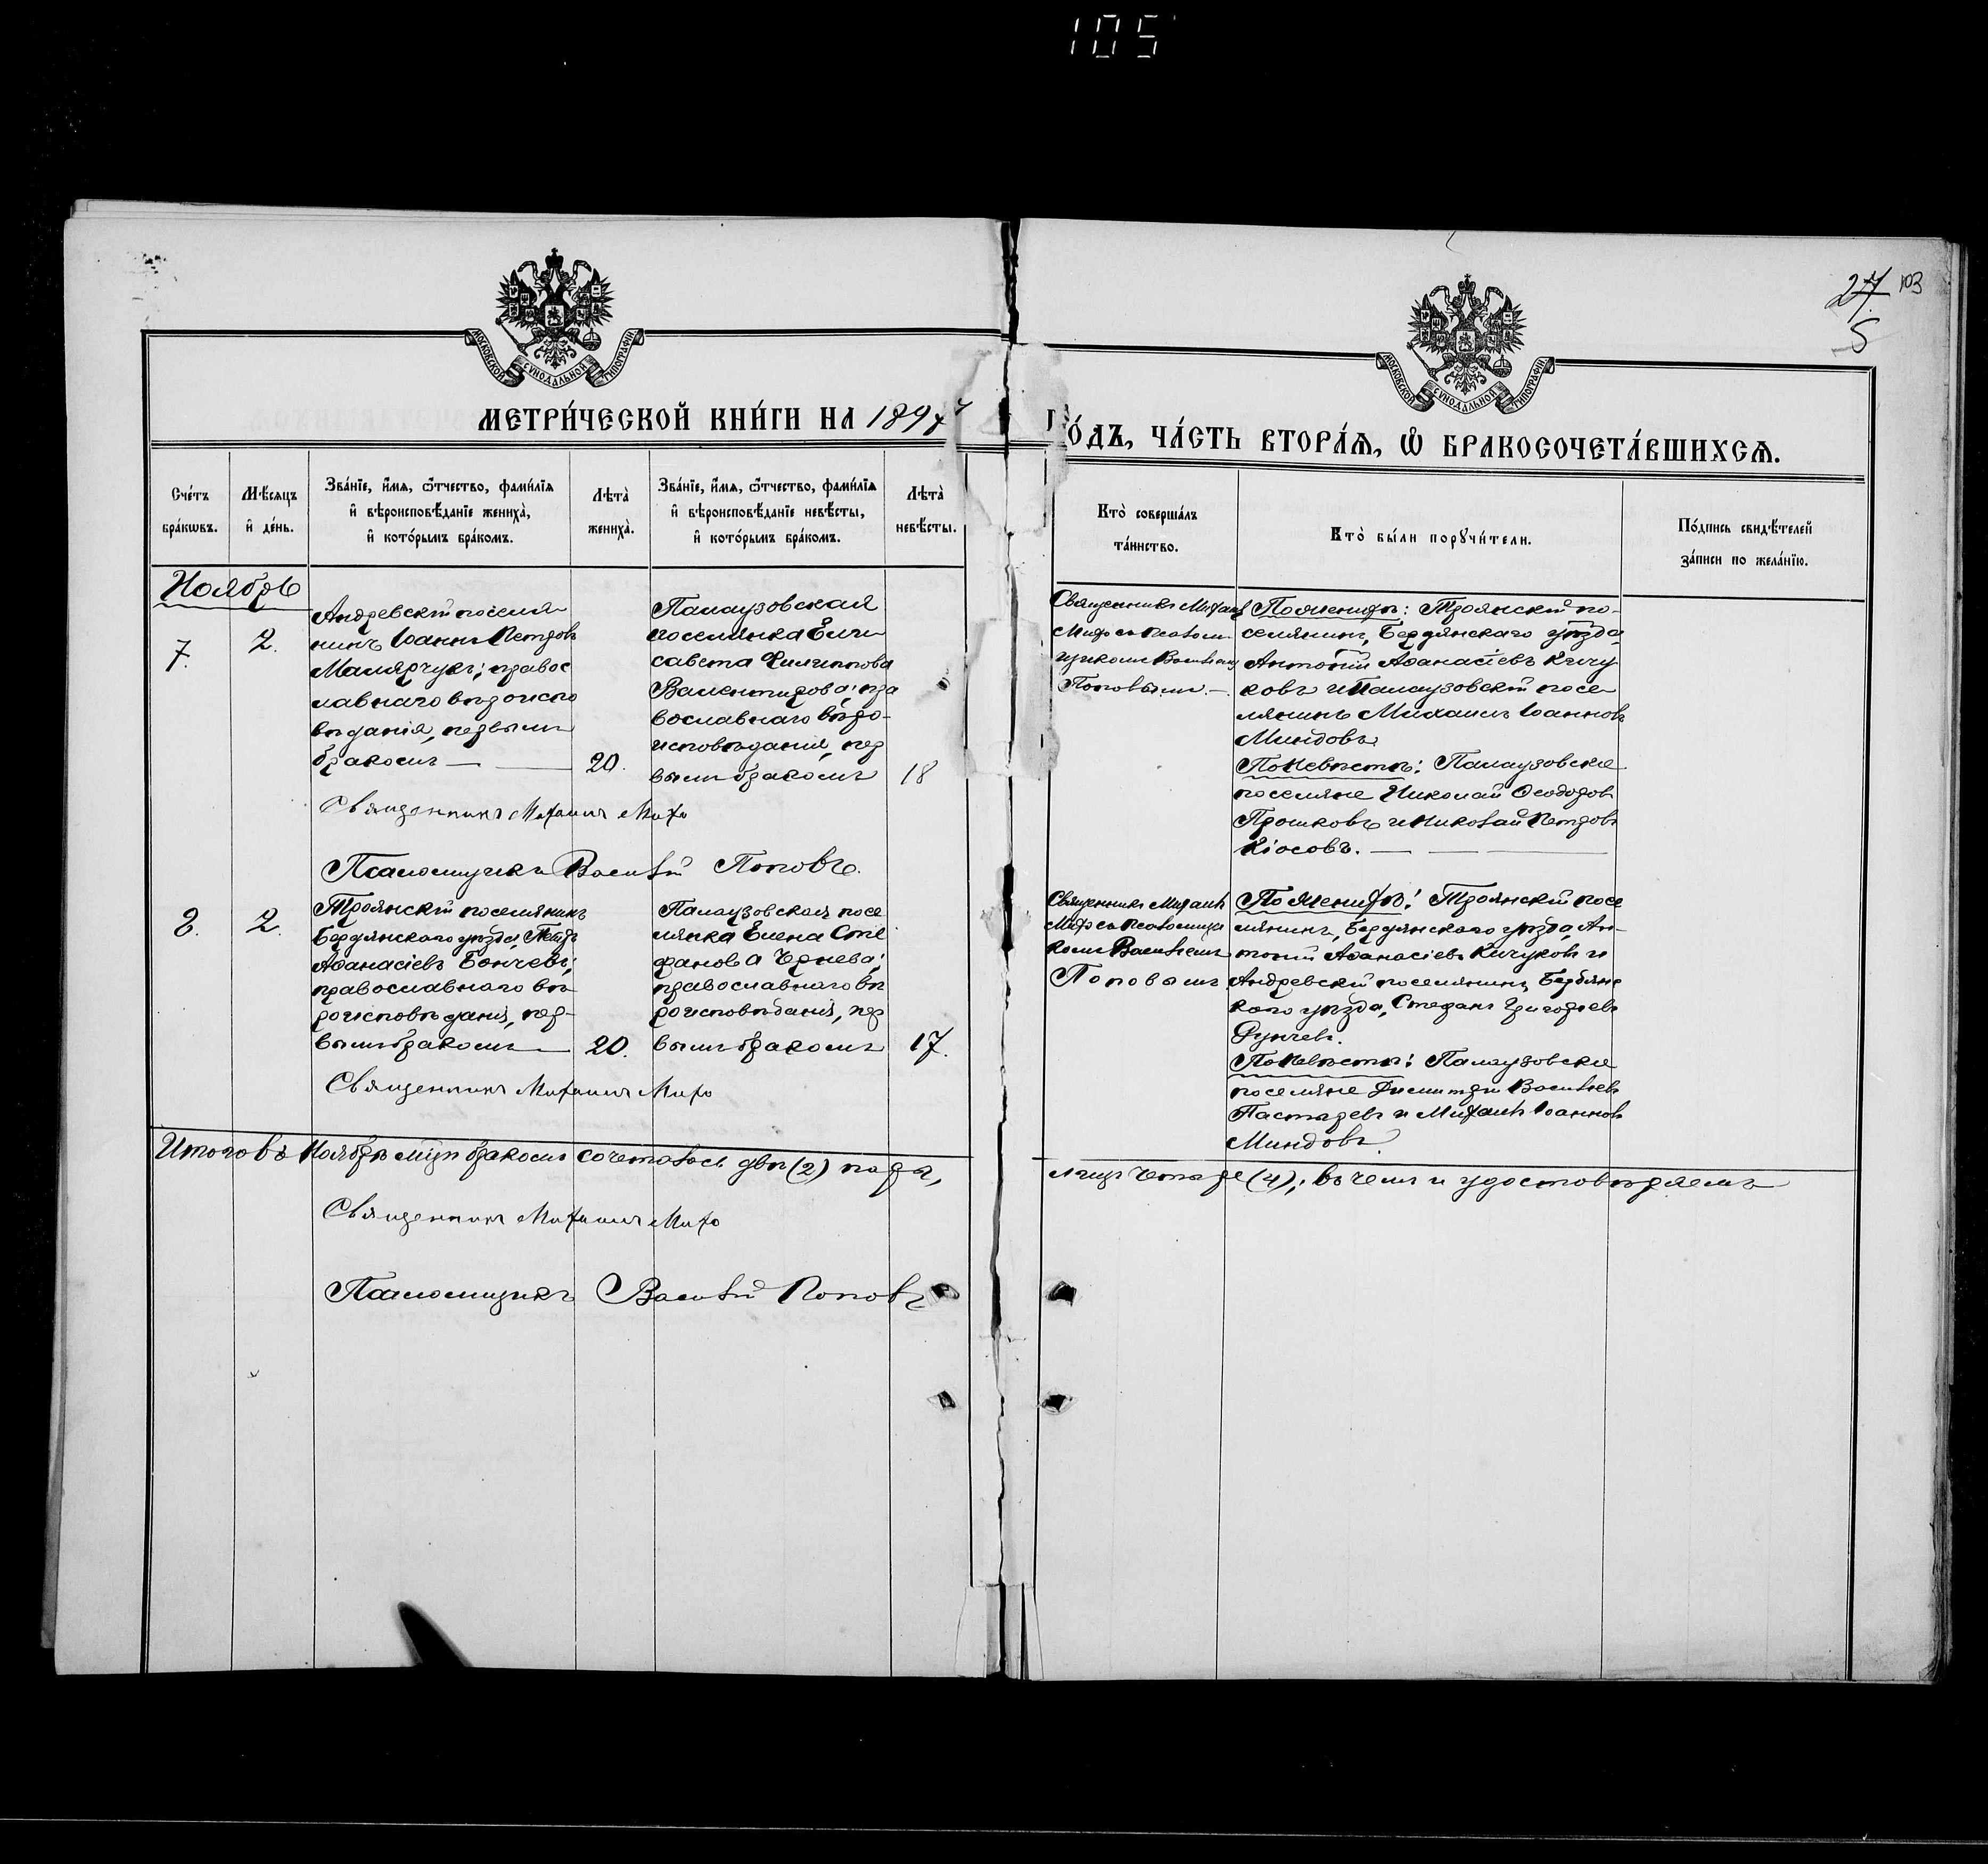 105
27/5 103
МОСКОВСКОЙ СѴНОДАЛЬНОЙ ТИПОГРАФІИ
МОСКОВСКОЙ СѴНОДАЛЬНОЙ ТИПОГРАФІИ
МЕТРИ́ЧЕСКОЙ КНИ́ГИ НА 1897
ГО́ДЪ, ЧА́СТЬ ВТОРА́Ѧ, Ѽ БРАКОСОЧЕТА́ВШИХСѦ.
Сче́тъ бра́кѡвъ.
Мѣ́сяцъ и҆ де́нь.
Зва́нїе, и҆́мя, ѻ҆́тчество, фами́лїя
и҆ вѣроисповѣ́данїе жениха̀,
и҆ кото́рымъ бра́комъ.
Лѣта̀ жениха̀.
Зва́нїе, и҆́мя, ѻ҆́тчество, фами́лїя
и҆ вѣроисповѣ́данїе невѣ́сты,
и҆ кото́рымъ бра́комъ.
Лѣта̀ невѣ́сты.
Кто̀ соверша́лъ
та́инство.
Кто̀ бы́ли порꙋчи́тели.
По́дпись свидѣ́телей
за́писи по жела́нїю.
Ноябрь
7.
2.
Андревскій поселя
нинъ Іоаннъ Петровъ
Малярчукъ; правос
лавнаго вѣроиспо
вѣданія, первымъ
бракомъ —
20.
Палаузовская
поселянка Ели
савета Филиппова
Валентирова; пра
вославнаго вѣро-
исповѣданія, пер
вымъ бракомъ
18
Священникъ Михаилъ
Михо съ псалом
щикомъ Василіемъ
Поповымъ. —
По женихѣ: Троянскій по-
селянинъ, Бердянскаго уѣзда,
Антоній Аѳанасіевъ Кичу
ковъ и Палаузовскій посе
лянинъ Михаилъ Іоанновъ
Миндовъ.
По невѣстѣ: Палаузовскіе
поселяне Николай Ѳеодоровъ
Прошковъ и Николай Петровъ
Кіосовъ. —
Священникъ Михаилъ Михо
Псаломщикъ Василій Поповъ.
8.
2.
Троянскій поселянинъ
Бердянскаго уѣзда, Петръ
Аѳанасіевъ Бончевъ;
православнаго вѣ
роисповѣданія, пер-
вымъ бракомъ —
20.
Палаузовская посе
лянка Елена Сте
фанова Чернева;
православнаго вѣ
роисповѣданія, пер
вымъ бракомъ
17.
Священникъ Михаилъ
Михо съ псаломщи
комъ Василіемъ
Поповымъ.
По женихѣ: Троянскій посе
лянинъ, Бердянскаго уѣзда, Ан-
тоній Аѳанасіевъ Кичуковъ и
Андревскій поселянинъ, Бердянс
каго уѣзда, Стефанъ Григоріевъ
Фунчевъ.
По невѣстѣ: Палаузовскіе
поселяне Димитрій Васильевъ
Пастыревъ и Михаилъ Іоанновъ
Миндовъ.
Священникъ Михаилъ Михо
Итого въ Ноябрѣ мцѣ бракомъ сочеталось двѣ (2) пары,
лицъ четыре (4); въ чемъ и удостовѣряемъ
Священникъ Михаилъ Михо
Псаломщикъ Василій Поповъ